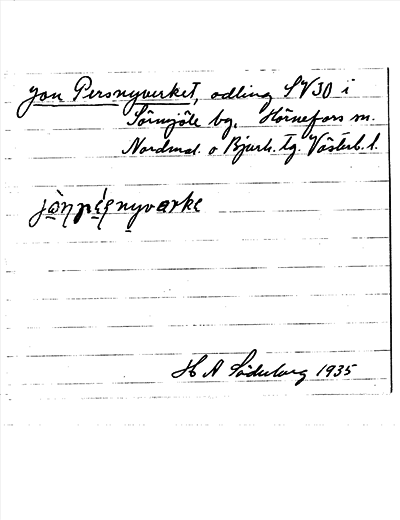 Jon Persnyverket, odling SV30 i
Sörmjöle by, Hörnefors sn.
Nordmal. o Bjurh. tg. Västerb. l.
jòn péʂnyværke
H A Söderberg 1935